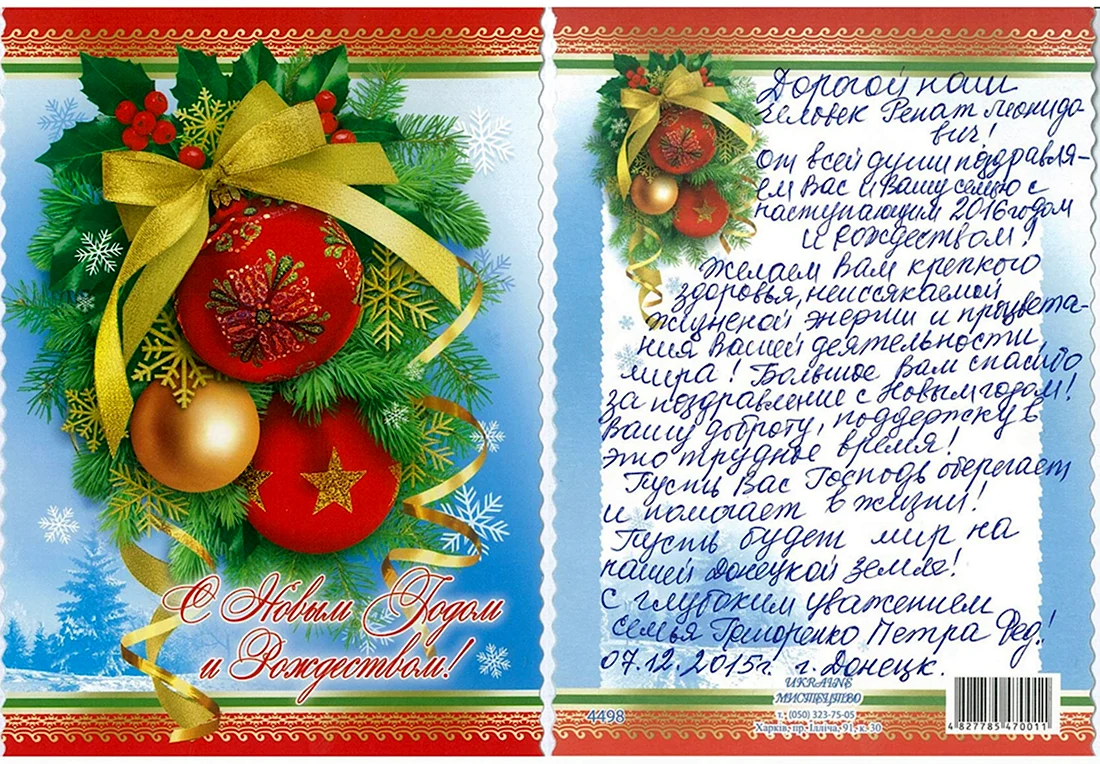 С Новым Годом
и Рождеством!
Дорогой наш
человек Ренат Леонидо-
вич!
От всей души поздравля-
ем Вас и Вашу семью с
наступающим 2016 годом
и рождеством!
Желаем Вам крепкого
здоровья, неиссякаемой
жизненной энергии и процвета-
ния Вашей деятельности,
мира! Большое Вам спасибо
за поздравление с Новым годом!
Вашу доброту, поддержку в
это трудное время!
Пусть Вас Господь оберегает
и помогает в жизни!
Пусть будет мир на
нашей Донецкой земле!
С глубоким уважением
семья Петра Фед.!
07.12.2015г. г. Донецк.
UKRAINE
МИСТЕЦТВО
т. (050) 323-75-05
Харків, пр. Ілліча, 91, к. 30
4498
4 827785 470011